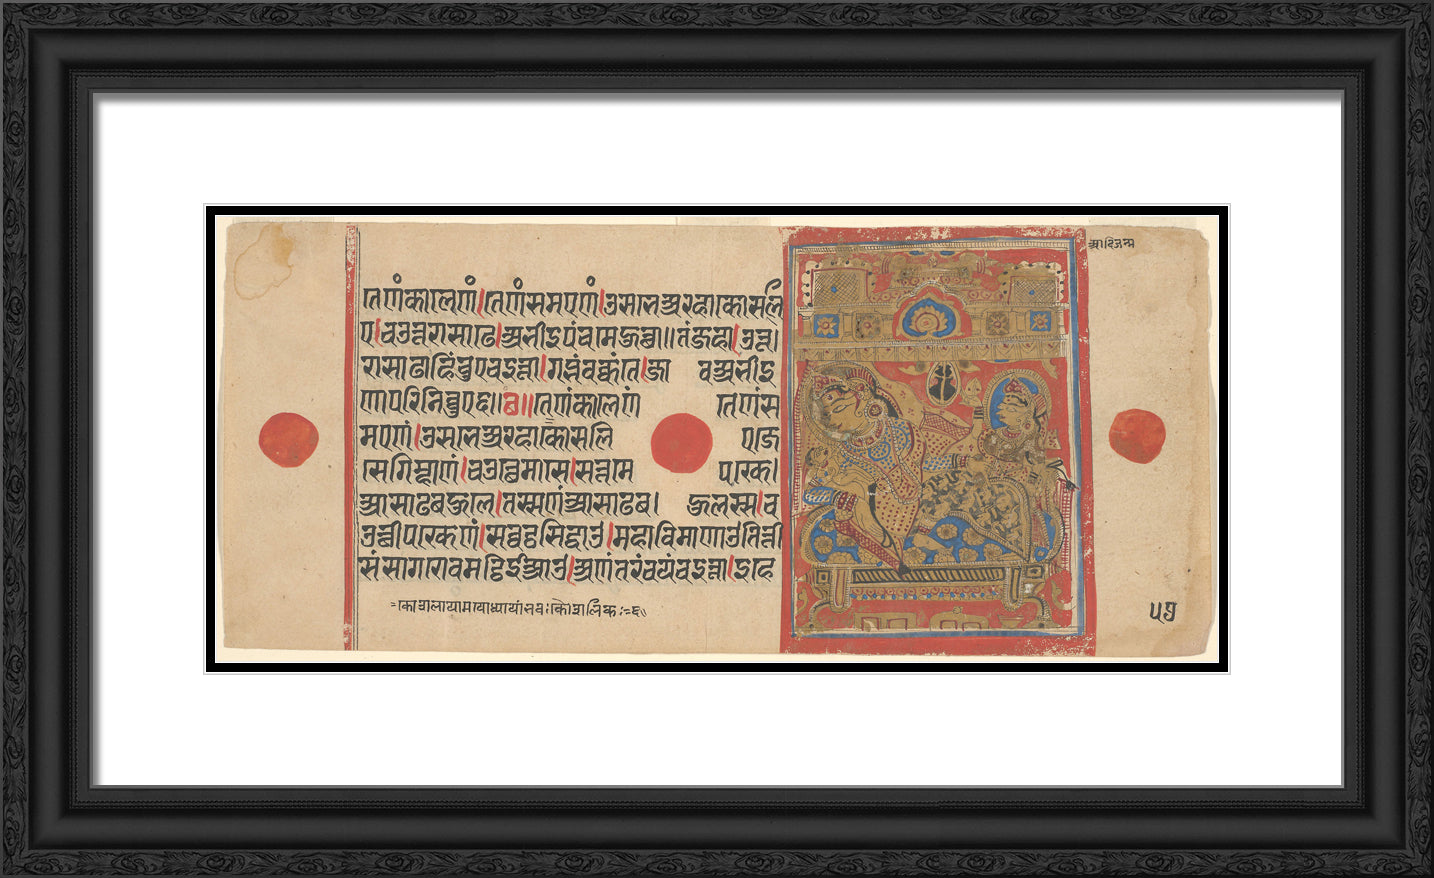 तेणंकालेणं।तेणंसमएणं।उसभेअरहाकोसलि
ए।चउउत्तरासाढे।अभीइपंचमेहुत्था॥तंजहा।उत्त
रासाढाहिंचुएचइत्ता।गब्भंवक्कंते।जा वअभीइ
णापरिनिव्वुए॥छ॥तेणंकालेणं तेणंस
मएणं।उसभेअरहाकोसलि एजे
सेगिम्हाणं।चउत्थेमासे।सत्तमे पक्खे।
आसाढबहुले।तस्सणंआसाढब। हुलस्स।च
उत्थीपक्खेणं।सव्वट्ठसिद्धाउ।महाविमाणाउतेत्ती
संसागरोवमट्ठिईआउ।अणंतरंचयंचइत्ता।इहे
कोशलायामयोध्यायांभवःकौशलिकः६
आदिजन्म